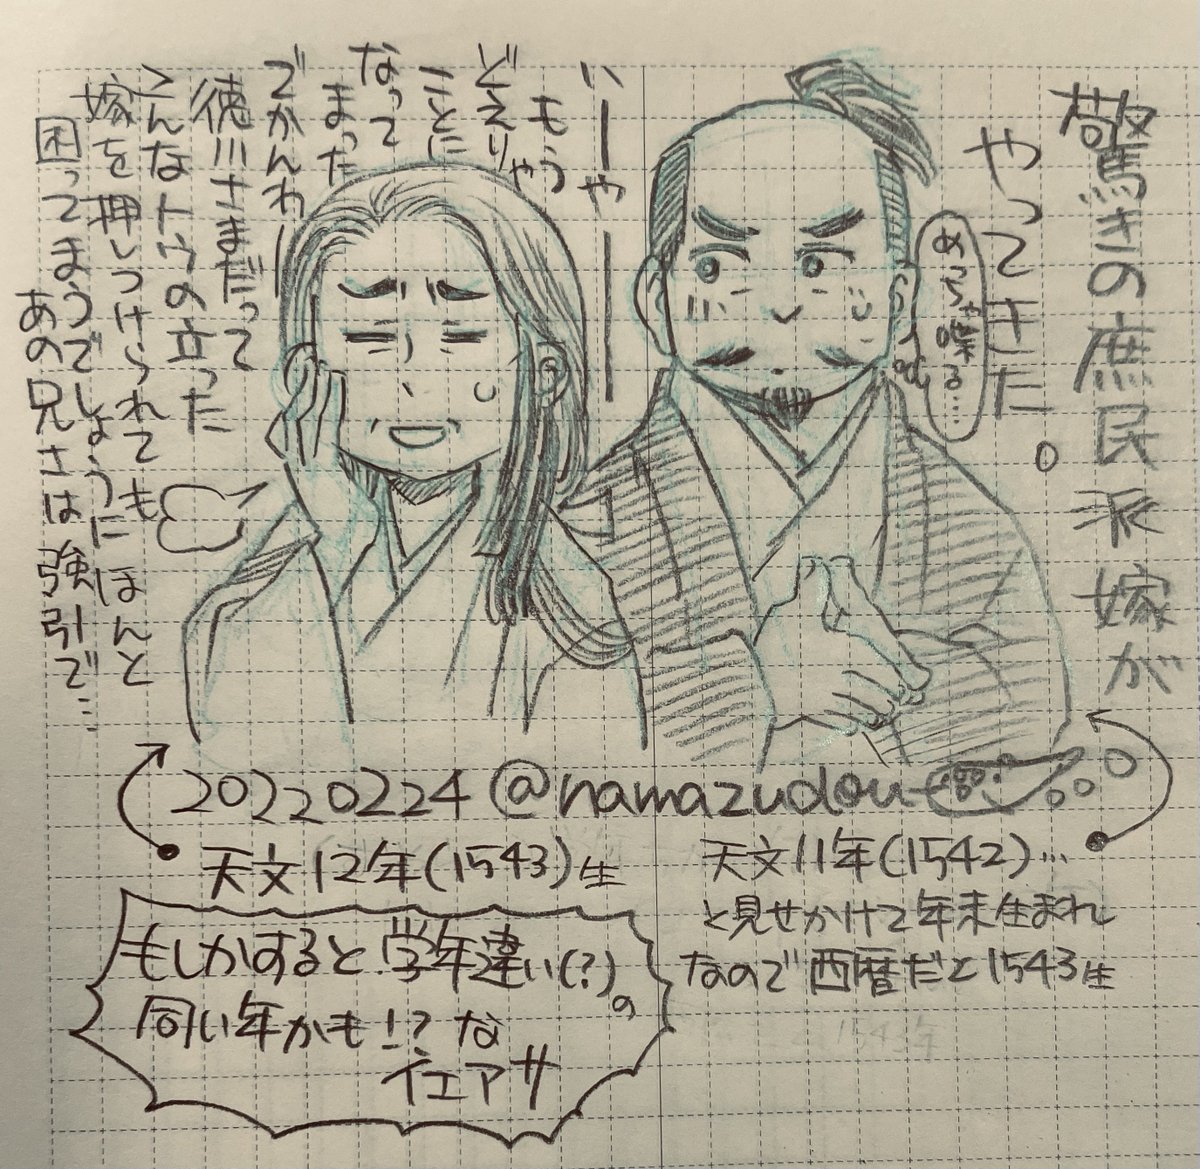 驚きの庶民派嫁が
やってきた。
めっちゃ喋る…
いーやーー
もう
どえりゃ
ことに
なって
まった
でかんわー
徳川さまだって
こんなトウの立った
嫁を押しつけられても
困ってまうでしょうにほんと
あの兄さは強引で…
20220224 @namazudou
天文12年(1543)生
天文11年(1542)…
と見せかけて年末生まれ
なので西暦だと1543生
もしかすると学年違い(?)の
同い年かも!?な
イエアサ